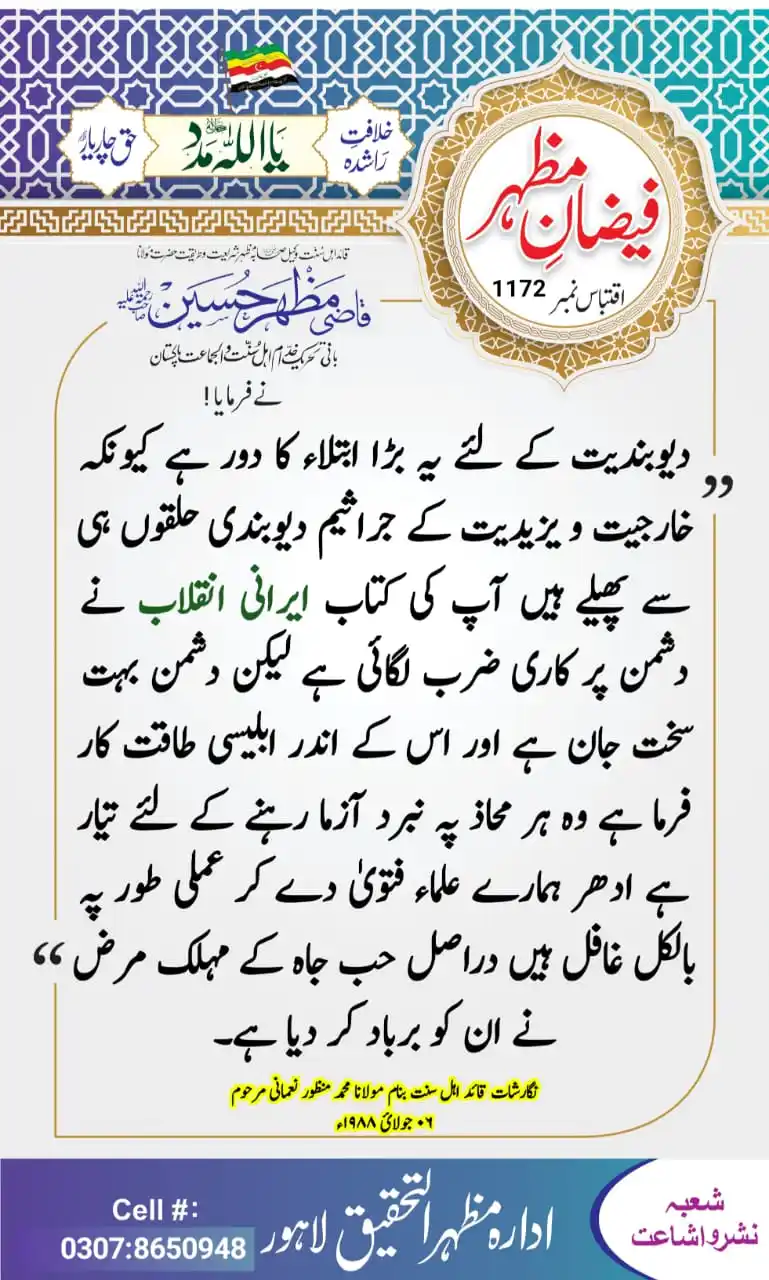 خلافتِ راشدہ
یا اللہ مدد
حق چار یار
فیضانِ مظہر
اقتباس نمبر 1172
قائد اہل سنت وکیل صحابہ مظہر شریعت و طریقت حضرت مولانا
قاضی مظہر حسین رحمۃ اللہ علیہ
بانی تحریک خدام اہل سنت والجماعت پاکستان
نے فرمایا !
”دیوبندیت کے لئے یہ بڑا ابتلاء کا دور ہے کیونکہ
خارجیت و یزیدیت کے جراثیم دیوبندی حلقوں ہی
سے پھیلے ہیں آپ کی کتاب ایرانی انقلاب نے
دشمن پر کاری ضرب لگائی ہے لیکن دشمن بہت
سخت جان ہے اور اس کے اندر ابلیسی طاقت کار
فرما ہے وہ ہر محاذ پہ نبرد آزما رہنے کے لئے تیار
ہے ادھر ہمارے علماء فتویٰ دے کر عملی طور پہ
بالکل غافل ہیں دراصل حب جاہ کے مہلک مرض“
نے ان کو برباد کر دیا ہے۔
نگارشات قائد اہل سنت بنام مولانا محمد منظور نعمانی مرحوم
۰۶ جولائ ۱۹۸۸ء
شعبہ
نشر و اشاعت
ادارہ مظہر التحقیق لاہور
Cell #:
0307:8650948